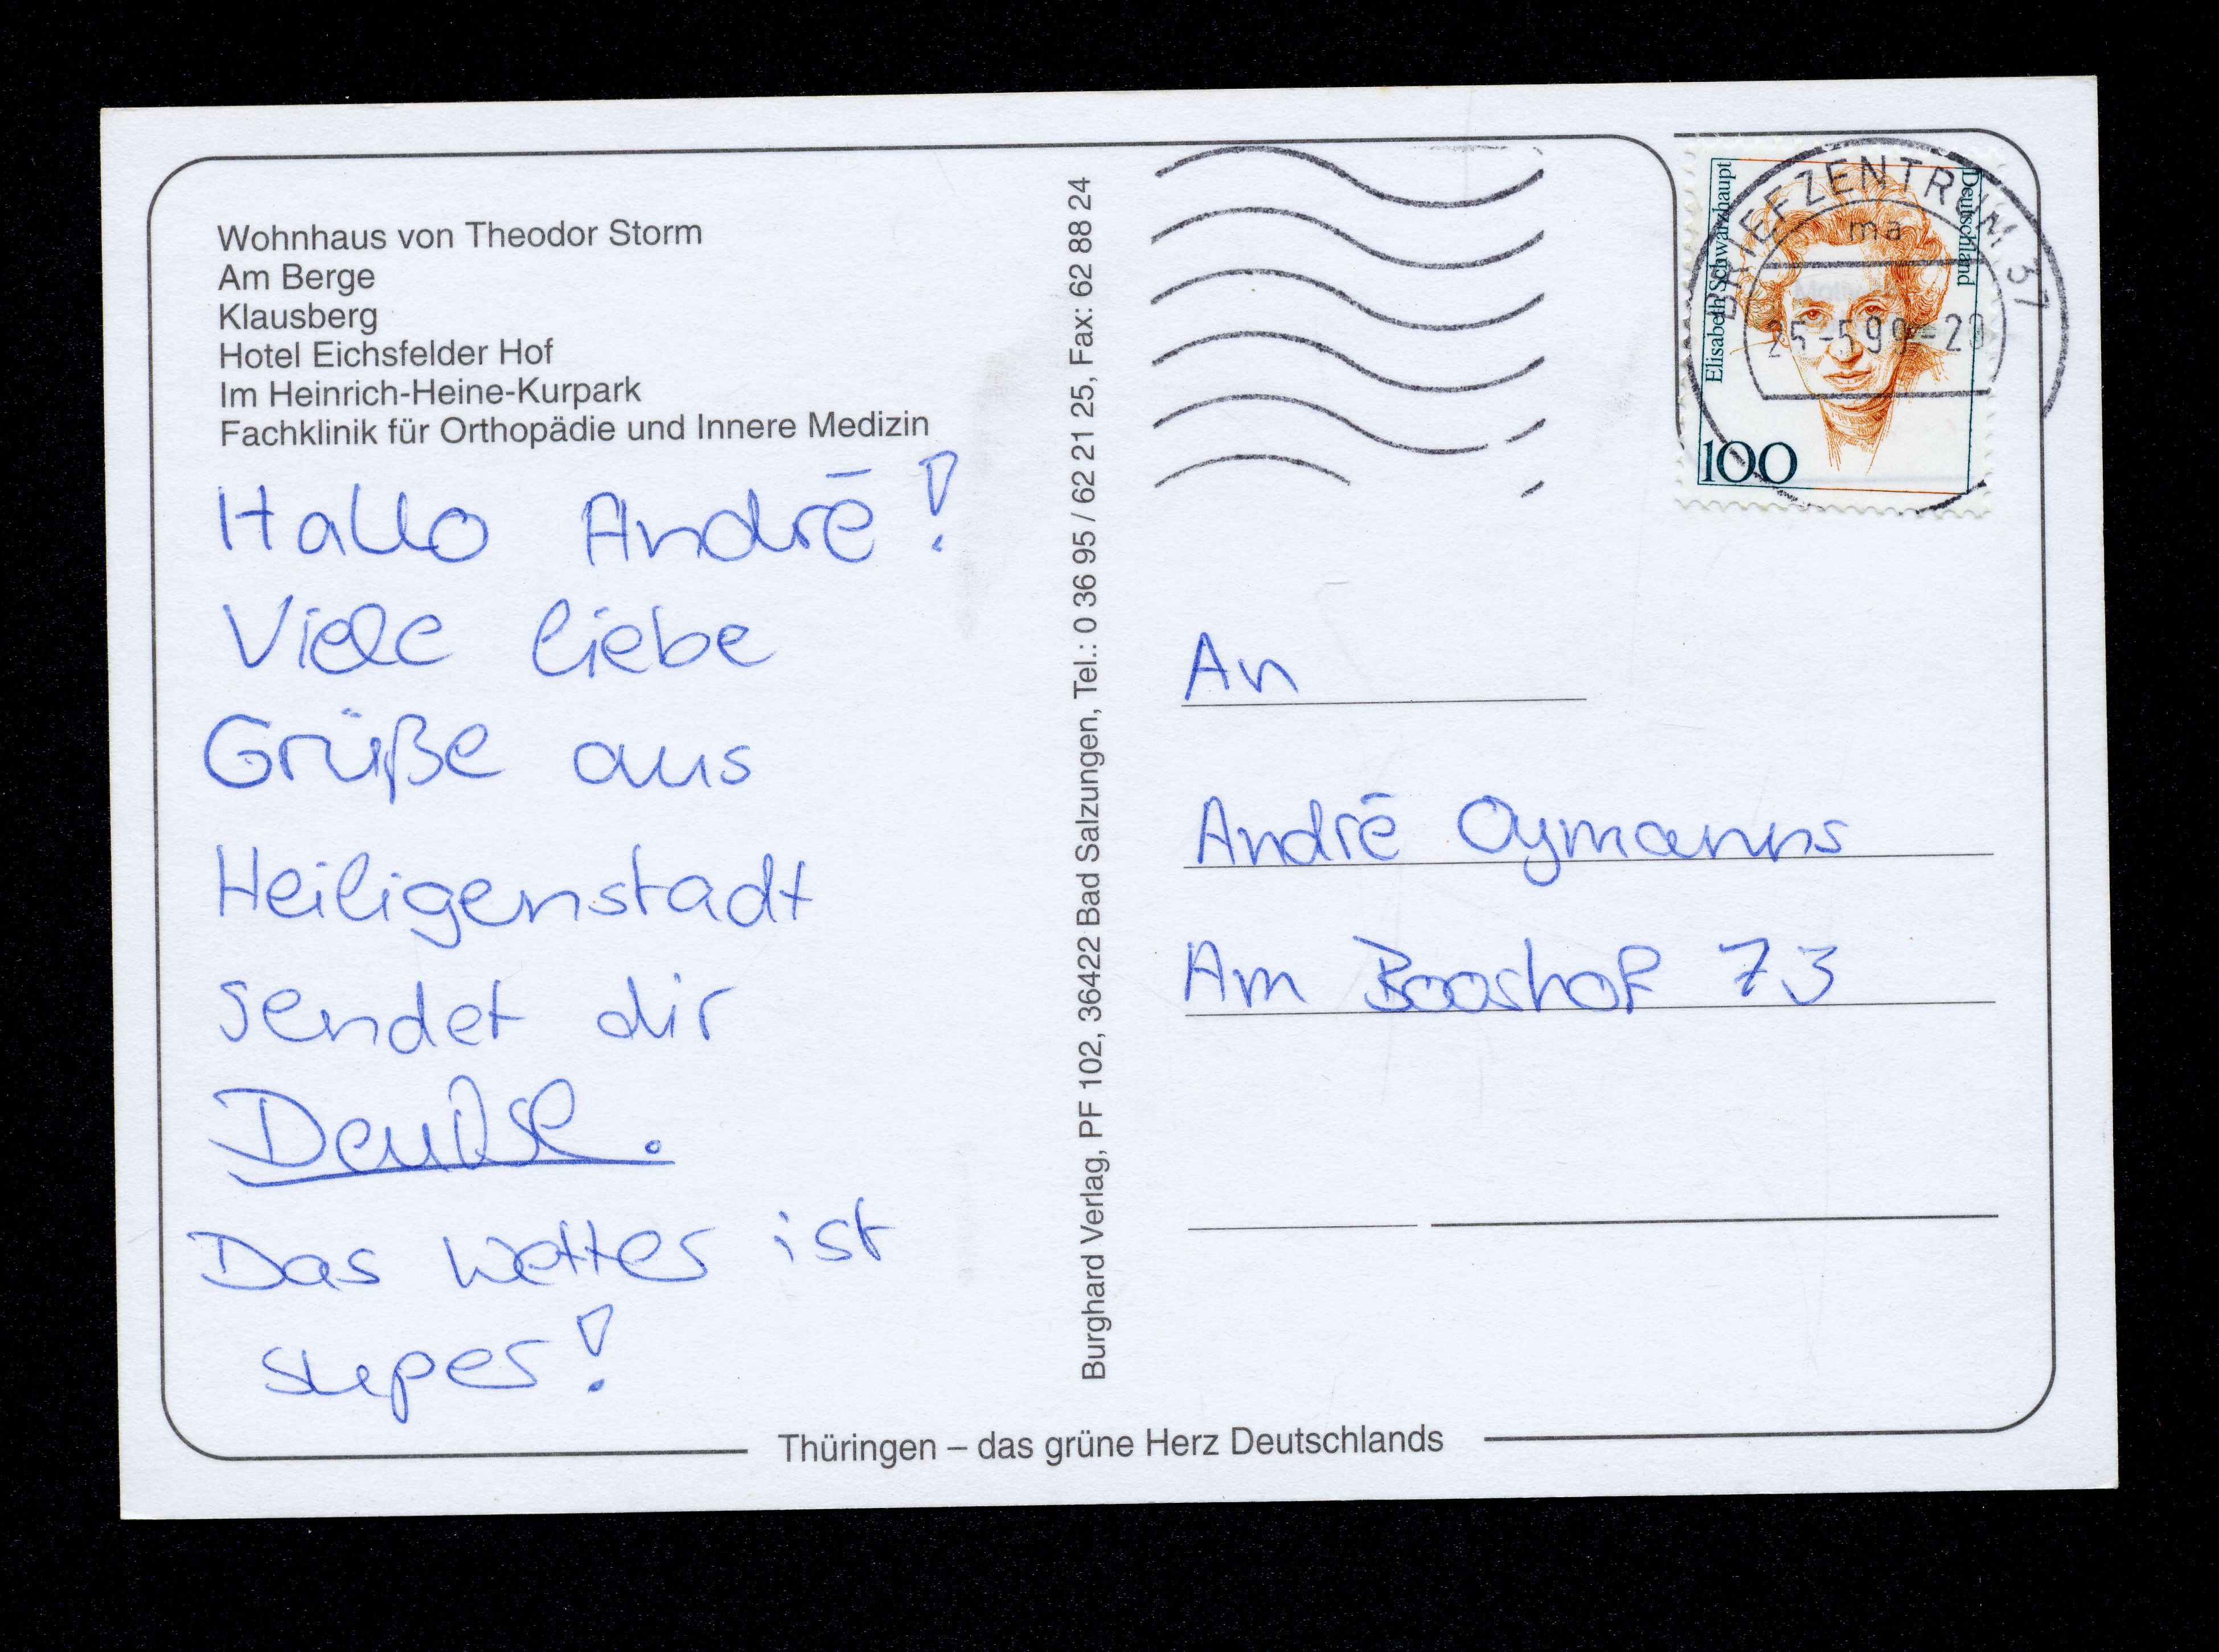 Wohnhaus von Theodor Storm
Am Berge
Klausberg
Hotel Eichsfelder Hof
Im Heinrich-Heine-Kurpark
Fachklinik für Orthopädie und Innere Medizin
Hallo André!
Viele liebe
Grüße aus
Heiligenstadt
sendet dir
Das Wetter ist
super!
Burghard Verlag, PF 102, 36422 Bad Salzungen, Tel.: 0 36 95 / 62 21 25, Fax: 62 88 24
BRIEFZENTRUM 37
ma
25.-5.99-20
Elisabeth Schwarzhaupt
Deutschland
100
An
André Oymanns
Am Booshof 73
Thüringen – das grüne Herz Deutschlands